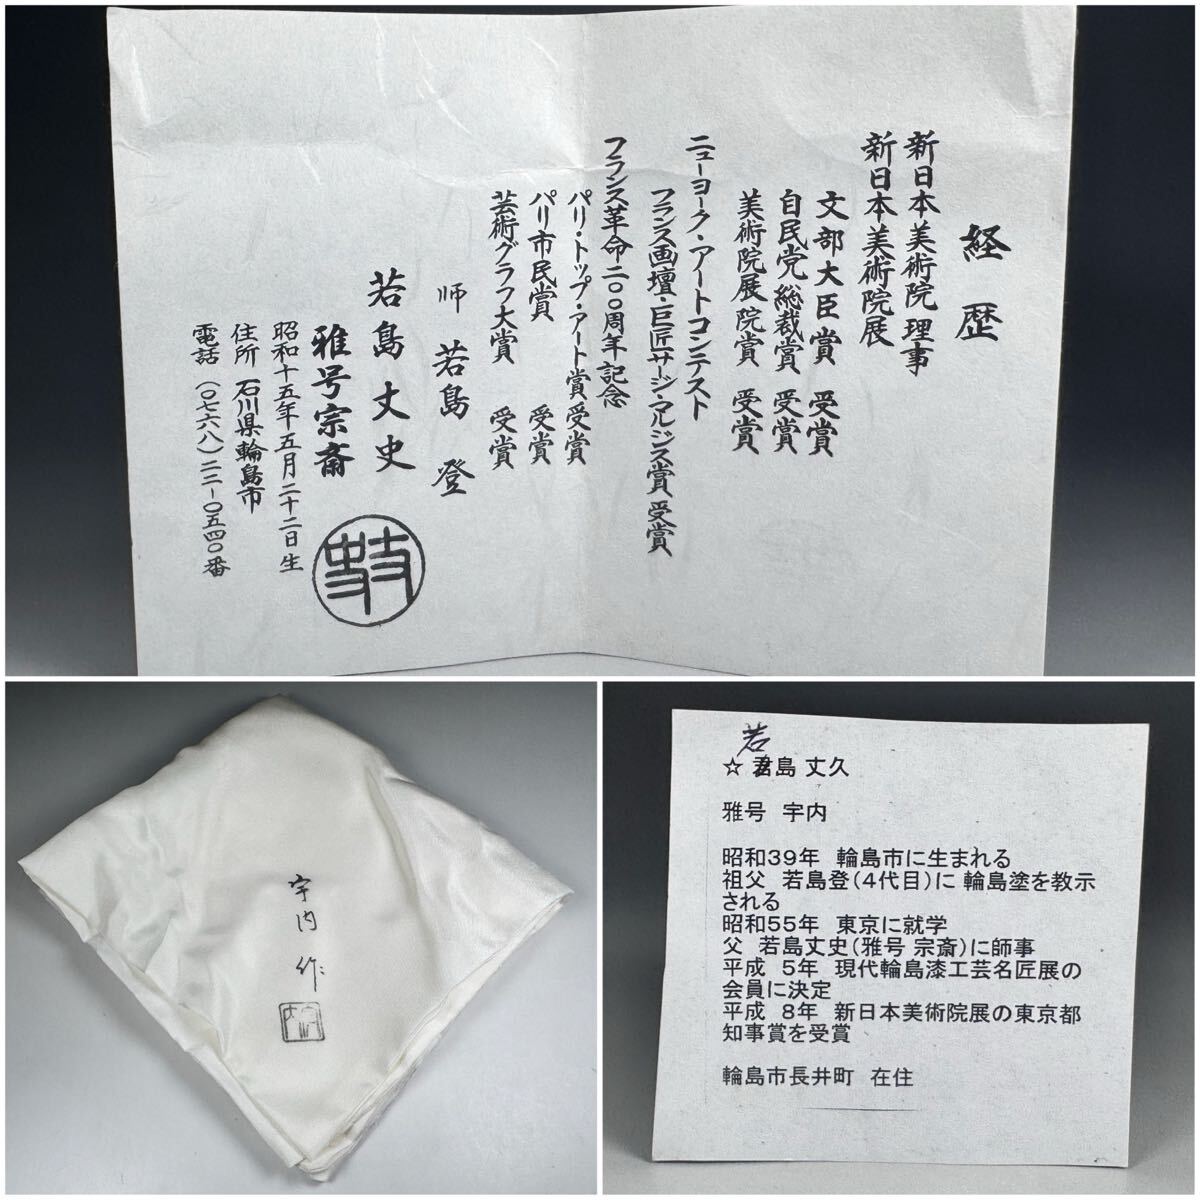 経歴
新日本美術院 理事
新日本美術院展
文部大臣賞 受賞
自民党総裁賞 受賞
美術院展院賞 受賞
ニューヨーク・アートコンテスト
フランス画壇・巨匠サージ・マルジス賞 受賞
フランス革命二〇〇周年記念
パリ・トップ・アート賞 受賞
パリ市民賞 受賞
芸術グラフ大賞 受賞
師 若島 登
若島丈史
雅号宗斎
昭和十五年五月二十二日生
住所 石川県輪島市
電話 (〇七六八)二二-〇五四〇番
宇内作
若
☆ 君島 丈久
雅号 宇内
昭和39年 輪島市に生まれる
祖父 若島登(4代目)に 輪島塗を教示
される
昭和55年 東京に就学
父 若島丈史(雅号 宗斎)に師事
平成 5年 現代輪島漆工芸名匠展の
会員に決定
平成 8年 新日本美術院展の東京都
知事賞を受賞
輪島市長井町 在住